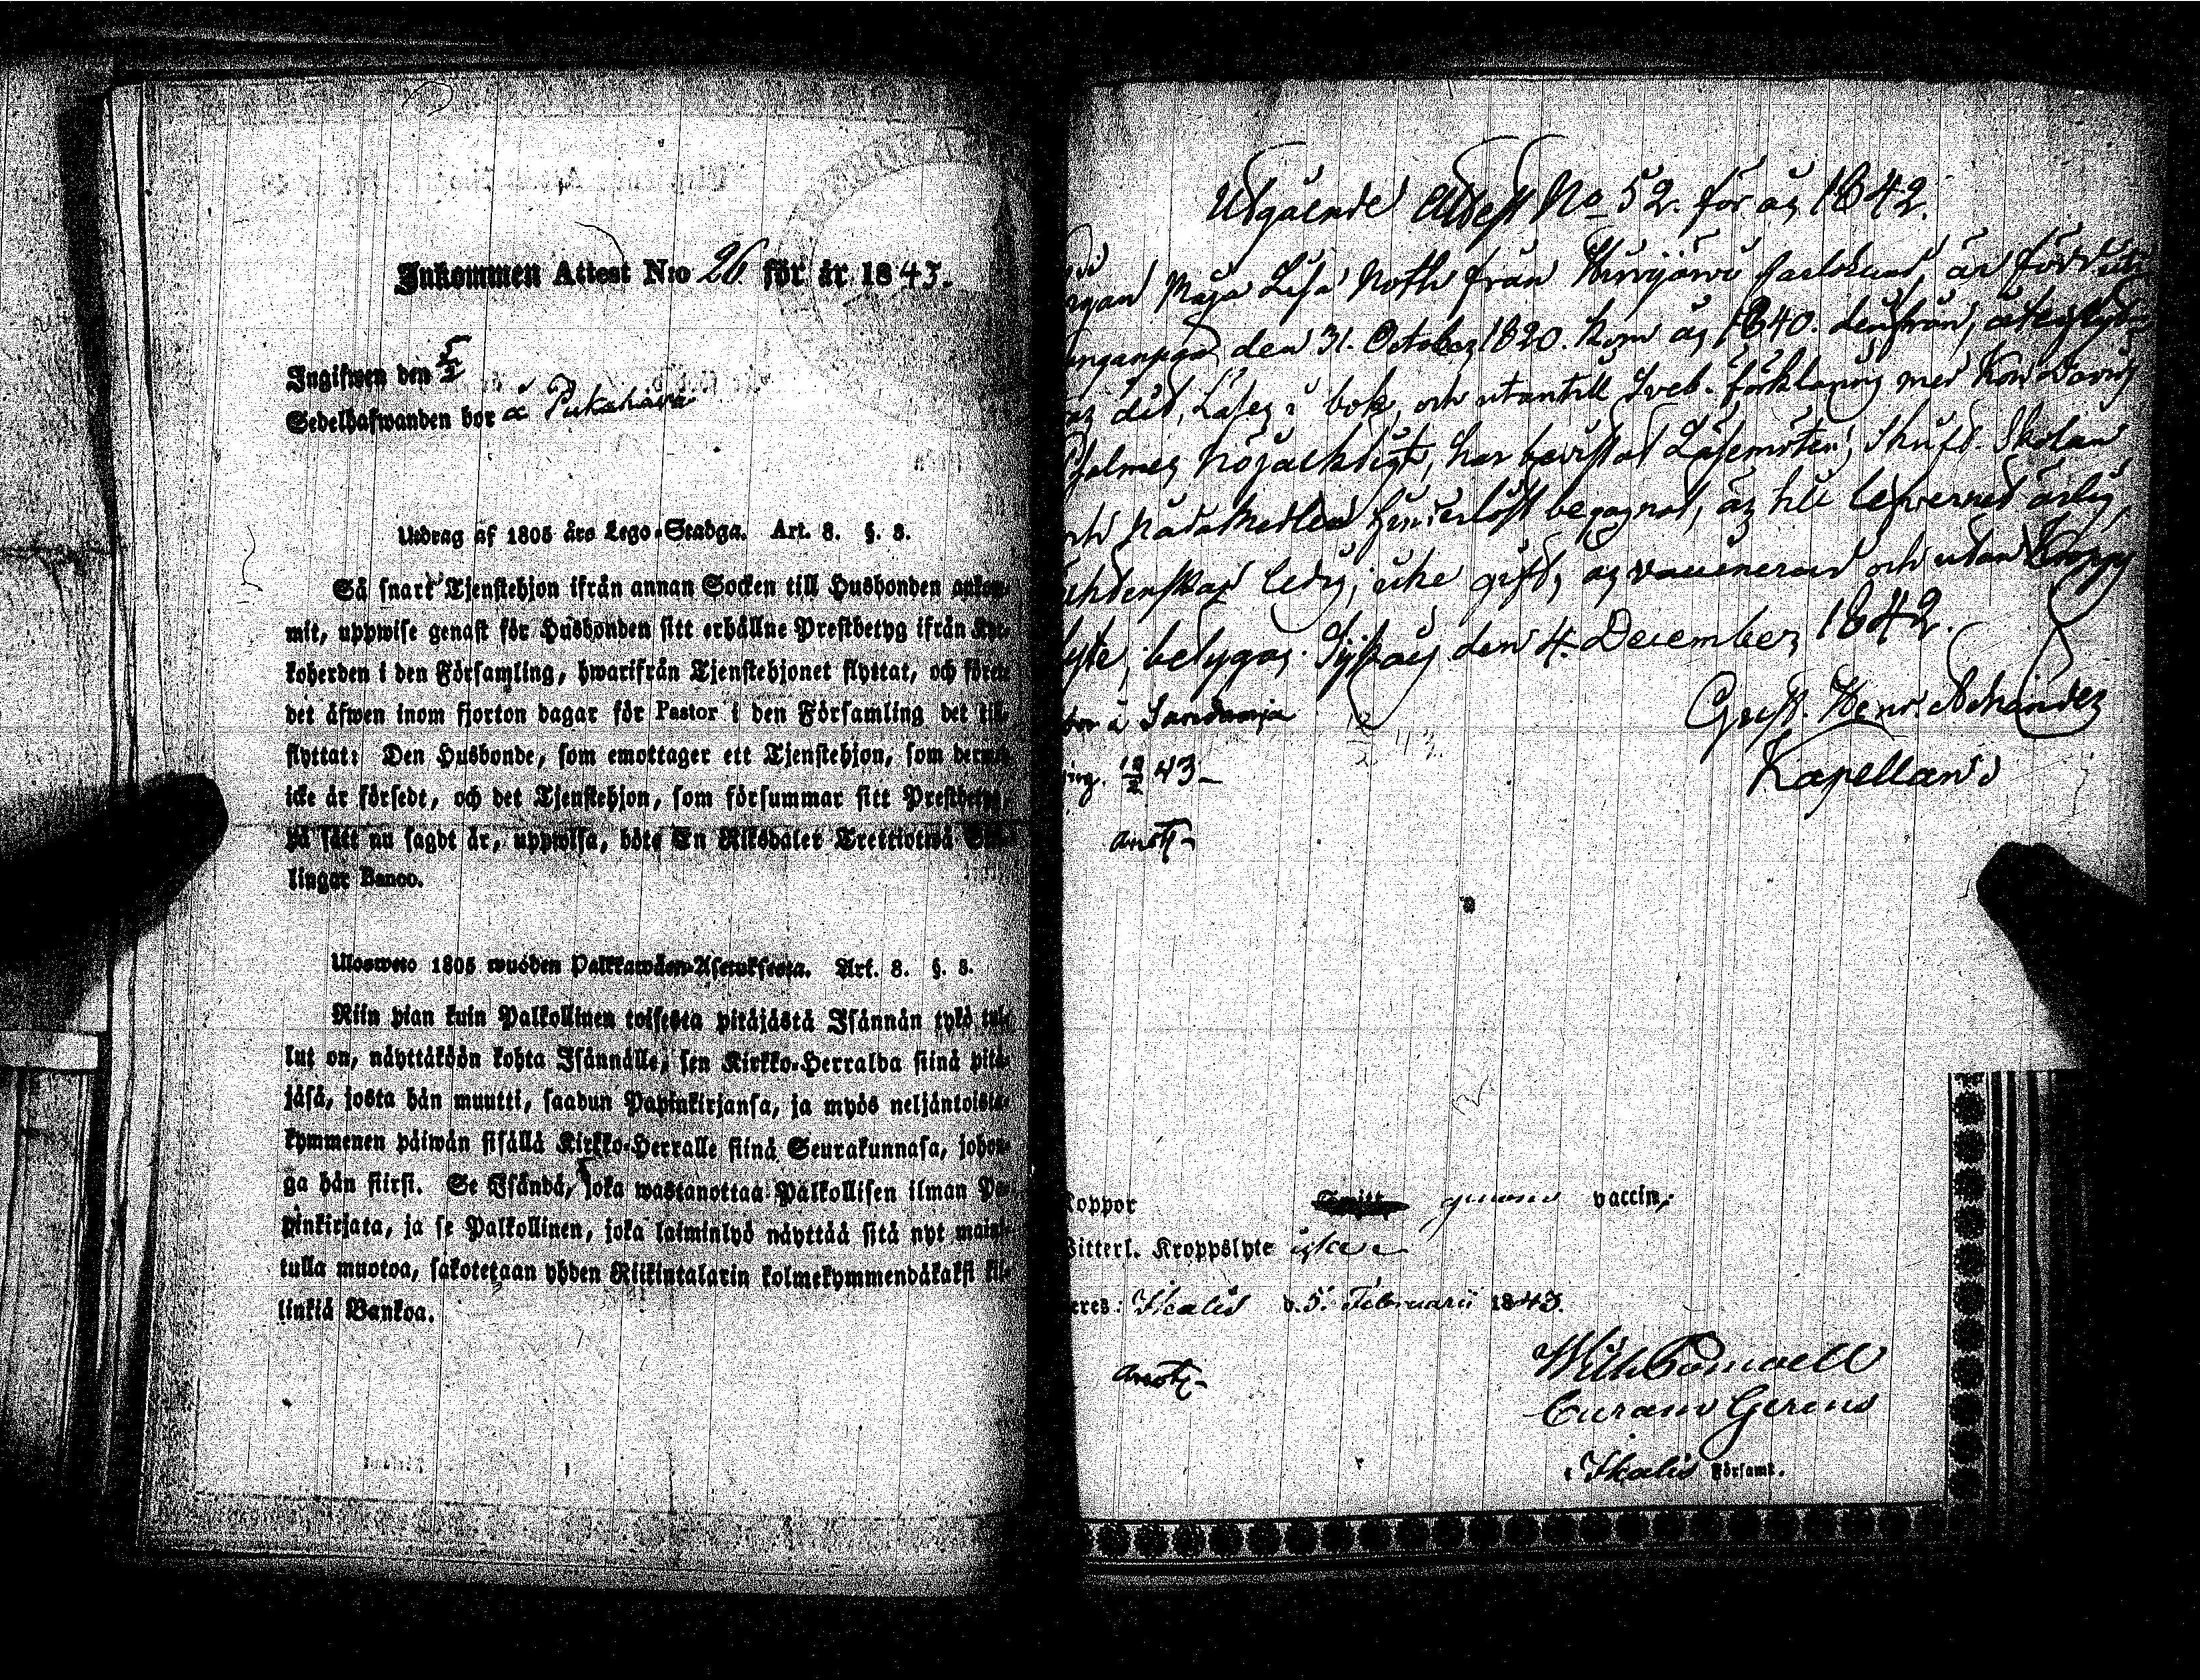 Inkommen Attest N:o 26 för år 1843.
Ingifwen den 5/2
Sedelhafwanden bor å Pukahara
Utdrag af 1805 års Lego-Stadga. Art. 8. §. 8.
Så snart Tjenstehjon ifrån annan Socken till Husbonden ankom-
mit, uppwise genast för Husbonden sitt erhållne Prestbetyg ifrån Kyr-
koherden i den Församling, hwarifrån Tjenstehjonet flyttat, och förete
det äfwen inom fjorton dagar för Pastor i den Församling det till-
flyttat: Den Husbonde, som emottager ett Tjenstehjon, som dermed
icke är försedt, och det Tjenstehjon, som försummar sitt Prestbetyg,
på sätt nu sagdt är, uppwisa, böte En Riksdaler Trettiotwå Skil-
lingar Banco.
Ulosweto 1805 wuoden Palkkawäen-Asetuksesta. Art. 8. §. 8.
Niin pian kuin Palkollinen toisesta pitäjästä Isännän tykö tul-
lut on, näyttäköön kohta Isännälle, sen Kirkko-Herralda siinä pitä-
jäsä, josta hän muutti, saadun Papinkirjansa, ja myös neljäntoista-
kymmenen päiwän sisällä Kirkko-Herralle siinä Seurakunnasa, johon-
ga hän siirsi. Se Isändä, joka wastanottaa Palkollisen ilman Pa-
pinkirjata, ja se Palkollinen, joka laiminlyö näyttää sitä nyt maini-
tulla muotoa, sakotetaan yhden Riikintalarin kolmekymmendäkaksi kil-
linkiä Bankoa.
Utgående Attest No 52. för år 1842.
Maja Lisa Noth från
den 31. October 1820. kom år 1840. derifrån,
dit, Läser i bok, och utantill Sveb. förklaring med Kon Davids
Psalmer nöjacktigt, har bevistat Läsemöten, Skrift. Skolan
och nådamedlen hinderlöst begagnat, är till lefvernet ärlig,
ledig, icke gift, är vaccinerad och utan Kropps
lyte, betygar. den 4. December 1842.
Gust. Henr.
Kapellan
bor å
ing. 12/2 43
anoth
Koppor genom vaccin;
Witterl. Kroppslyte
Ikalis d. 5. Februarii 1843.
anoth
Curam Gerens
i Ikalis Församl.